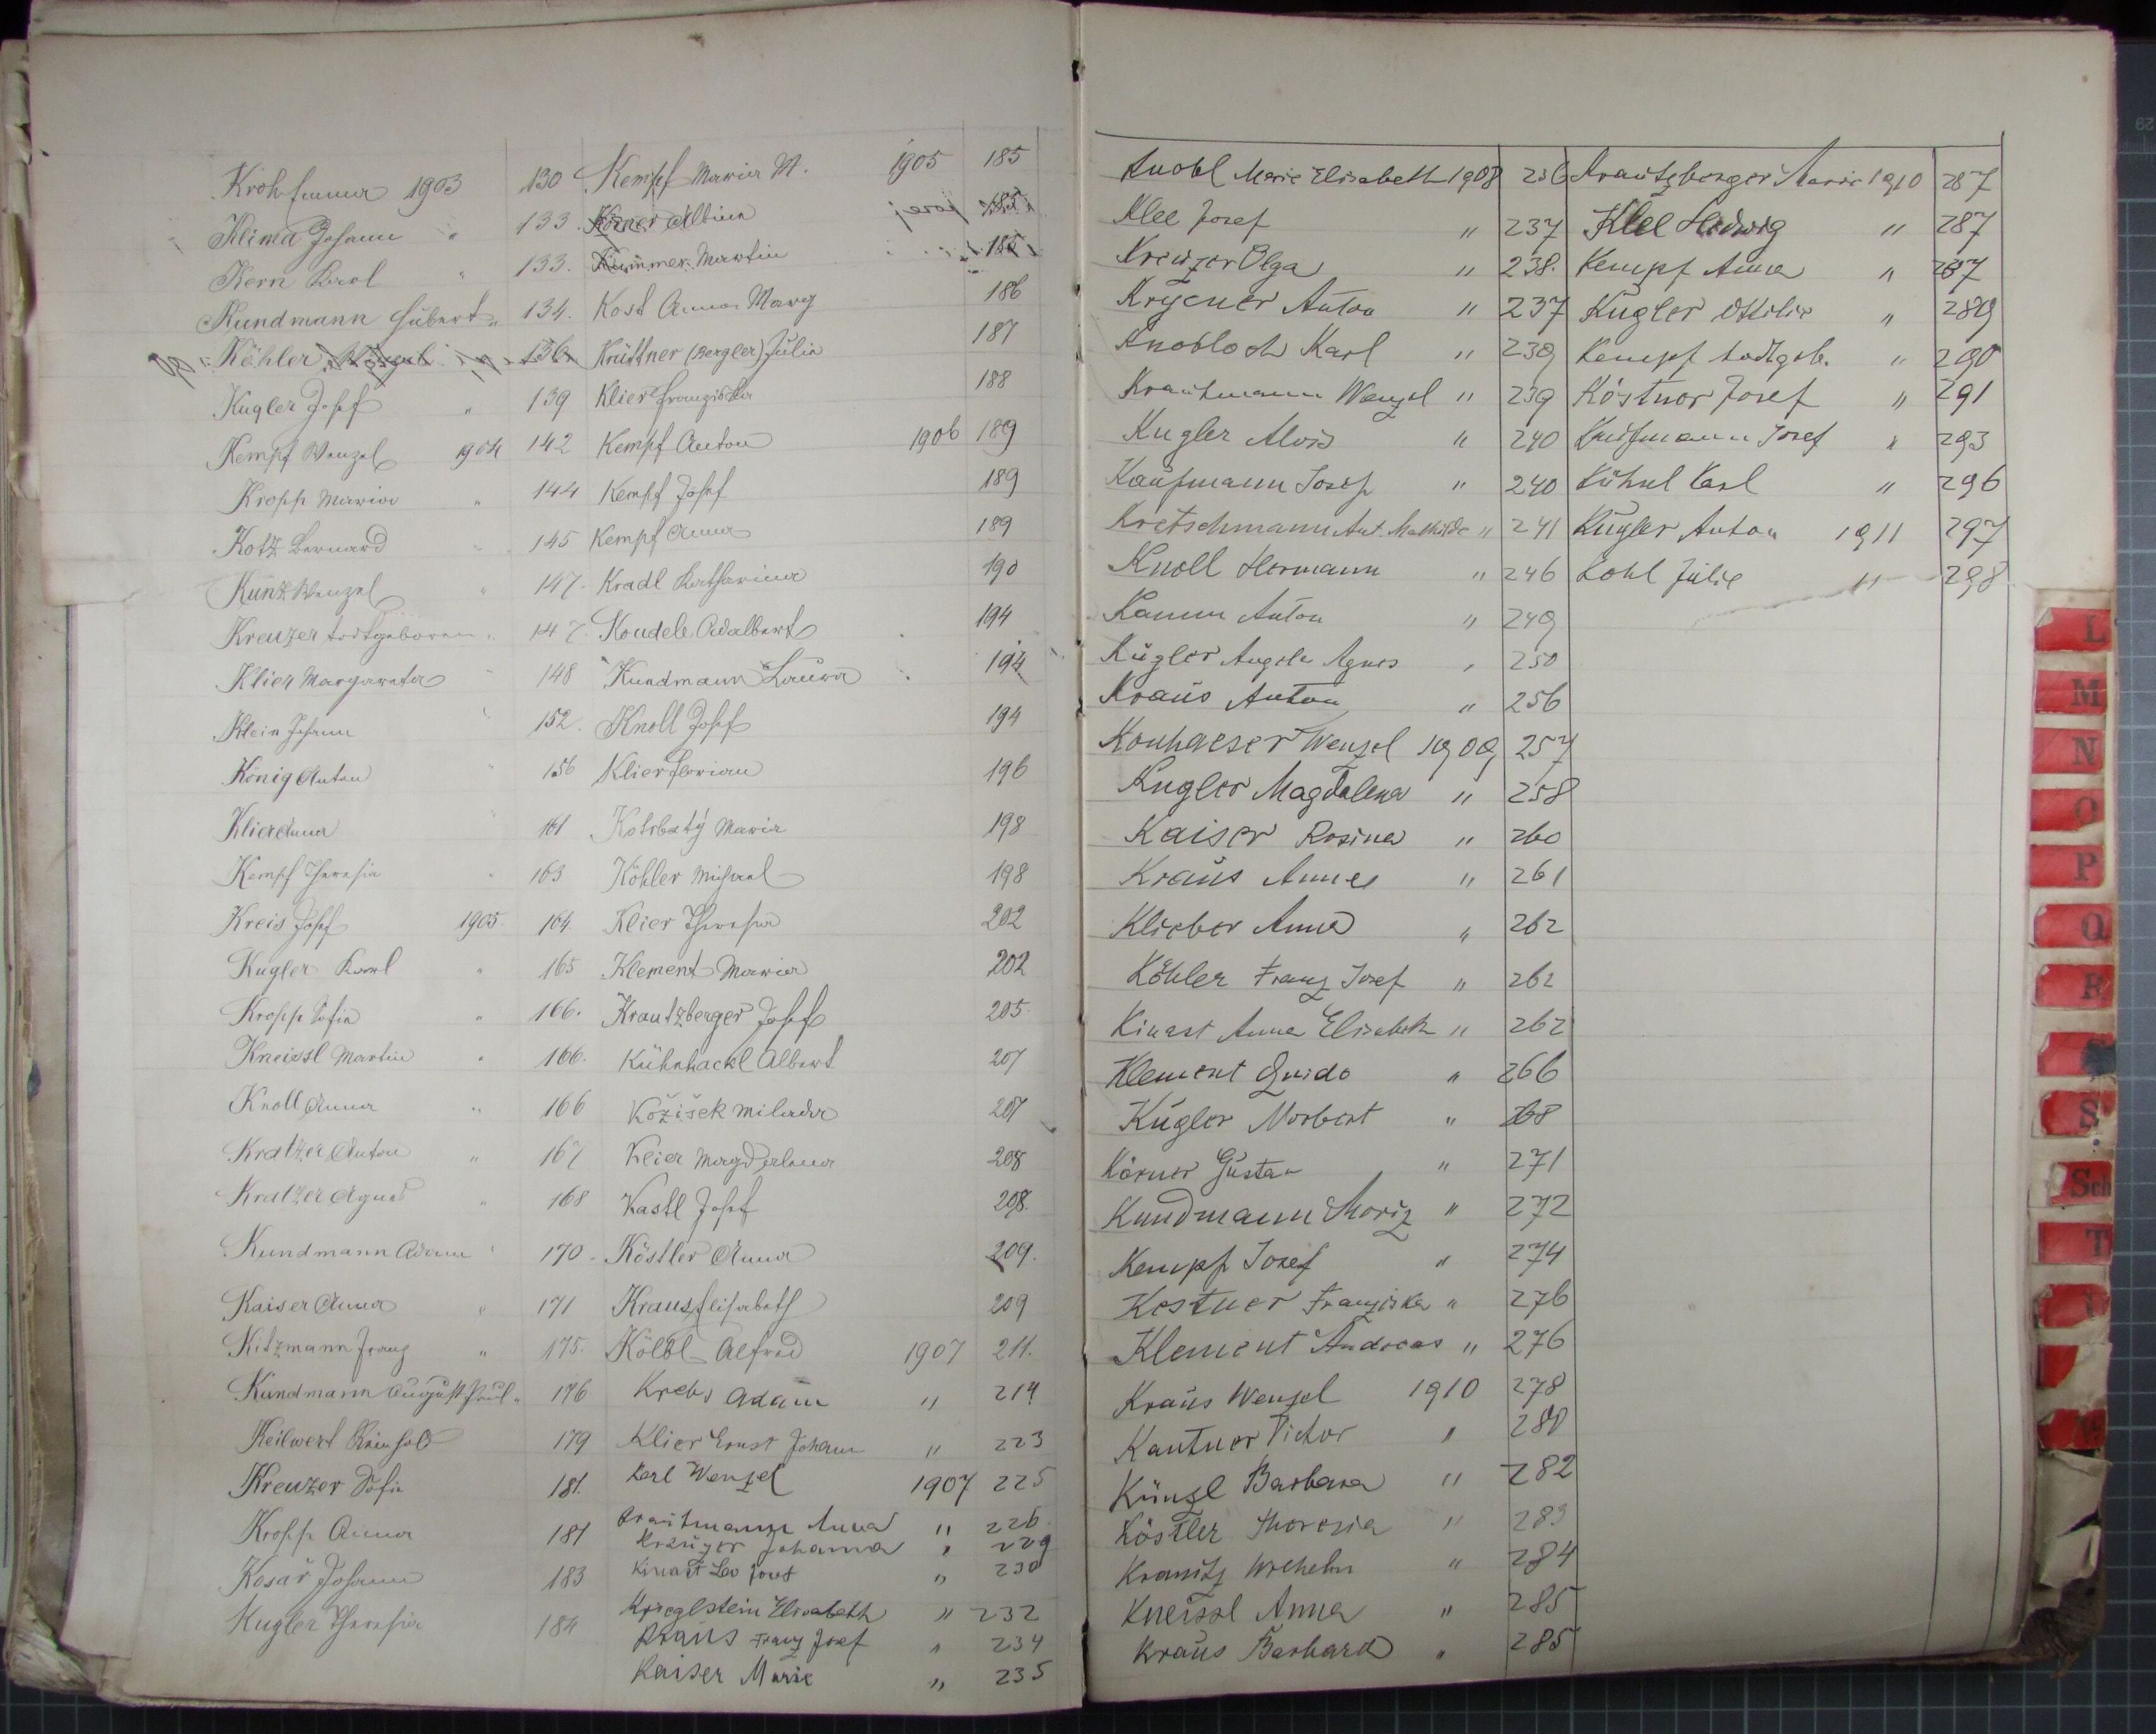 Kroh Emma 1903 130
Klima Johann " 133.
Kern Karl " 133.
Kundmann Hubert " 134.
Köhler 136
Kugler Josef " 139
Kempf Wenzel 1904 142
Kropp Maria " 144
Kotz Bernard " 145
Kunz Wenzel " 147.
Kreuzer todtgeboren " 147.
Klier Margareta " 148
Klein Johann " 152.
König Anton " 156
Klier Anna " 161
Kempf Theresia " 163
Kreis Josef 1905 164.
Kugler Karl " 165
Kropp Sofia " 166.
Kneissl Martin " 166.
Knoll Anna " 166
Kratzer Anton " 167
Kratzer Agnes " 168
Kundmann Adam " 170.
Kaiser Anna " 171
Kitzmann Franz " 175.
Kundmann August Paul " 176
Keilwert Reinhold 179
Kreuzer Sofie 181.
Kropp Anna 181
Kosař Johann 183
Kugler Theresia 184
Kempf Maria M. 1905 185
Körner Albina 185
Kummer Martin 185
Kost Anna Marg 186
Krüttner (Bergler) Julia 187
Klier Franziska 188
Kempf Anton 1906 189
Kempf Josef 189
Kempf Anna 189
Kradl Katharina 190
Koudele Adalbert 194
Kundmann Laura 194
Knoll Josef 194
Klier Florian 196
Kotrbatý Maria 198
Köhler Michael 198
Klier Theresia 202
Klement Maria 202
Krautzberger Josef 205
Kühnhackl Albert 207
Kožišek Milada 207
Klier Magdalena 208
Kastl Josef 208.
Köstler Anna 209.
Kraus Elisabeth 209
Kölbl Alfred 1907 211.
Krebs Adam " 214
Klier Ernst Johann " 223
Karl Wenzel 1907 225
Krautmann Anna " 226
Kreuzer Johanna " 229
Kinast Leo Josef " 230
Krieglstein Elisabeth " 232
Kraus Franz Josef " 234
Kaiser Marie " 235
Knobl Marie Elisabeth 1908 236
Klee Josef " 237
Kreuzer Olga " 238.
Anton " 237
Knobloch Karl " 239
Krautmann Wenzel " 239
Kugler Alois " 240
Kaufmann Josef " 240
Kretschmann Ant. Mathilde " 241
Knoll Hermann " 246
Kamm Anton " 249
Kugler Angela Agnes " 250
Kraus Anton " 256
Konhaeser Wenzel 1909 257
Kugler Magdalena " 258
Kaiser Rosina " 260
Kraus Anna " 261
Klieber Anna " 262
Köhler Franz Josef " 262
Kinast Anna Elisabeth " 262
Klement Guido " 266
Kugler Norbert " 268
Körner Gustav " 271
Kundmann Moriz " 272
Kempf Josef " 274
Kestner Franziska " 276
Klement Andreas " 276
Kraus Wenzel 1910 278
Kantner Victor " 280
Künzl Barbara " 282
Köstler Theresia " 283
Kranitz Wilhelm " 284
Kneissl Anna " 285
Kraus Barbara " 285
Krautzberger Maria 1910 287
Klee Hedwig " 287
Kempf Anna " 287
Kugler Ottilie " 289
Kempf todtgeb. " 290
Köstner Josef " 291
Kaufmann Josef " 293
Kühnl Karl " 296
Kugler Anton 1911 297
Kohl Julie " 298
L
M
N
O
P
Q
R
S
Sch
T